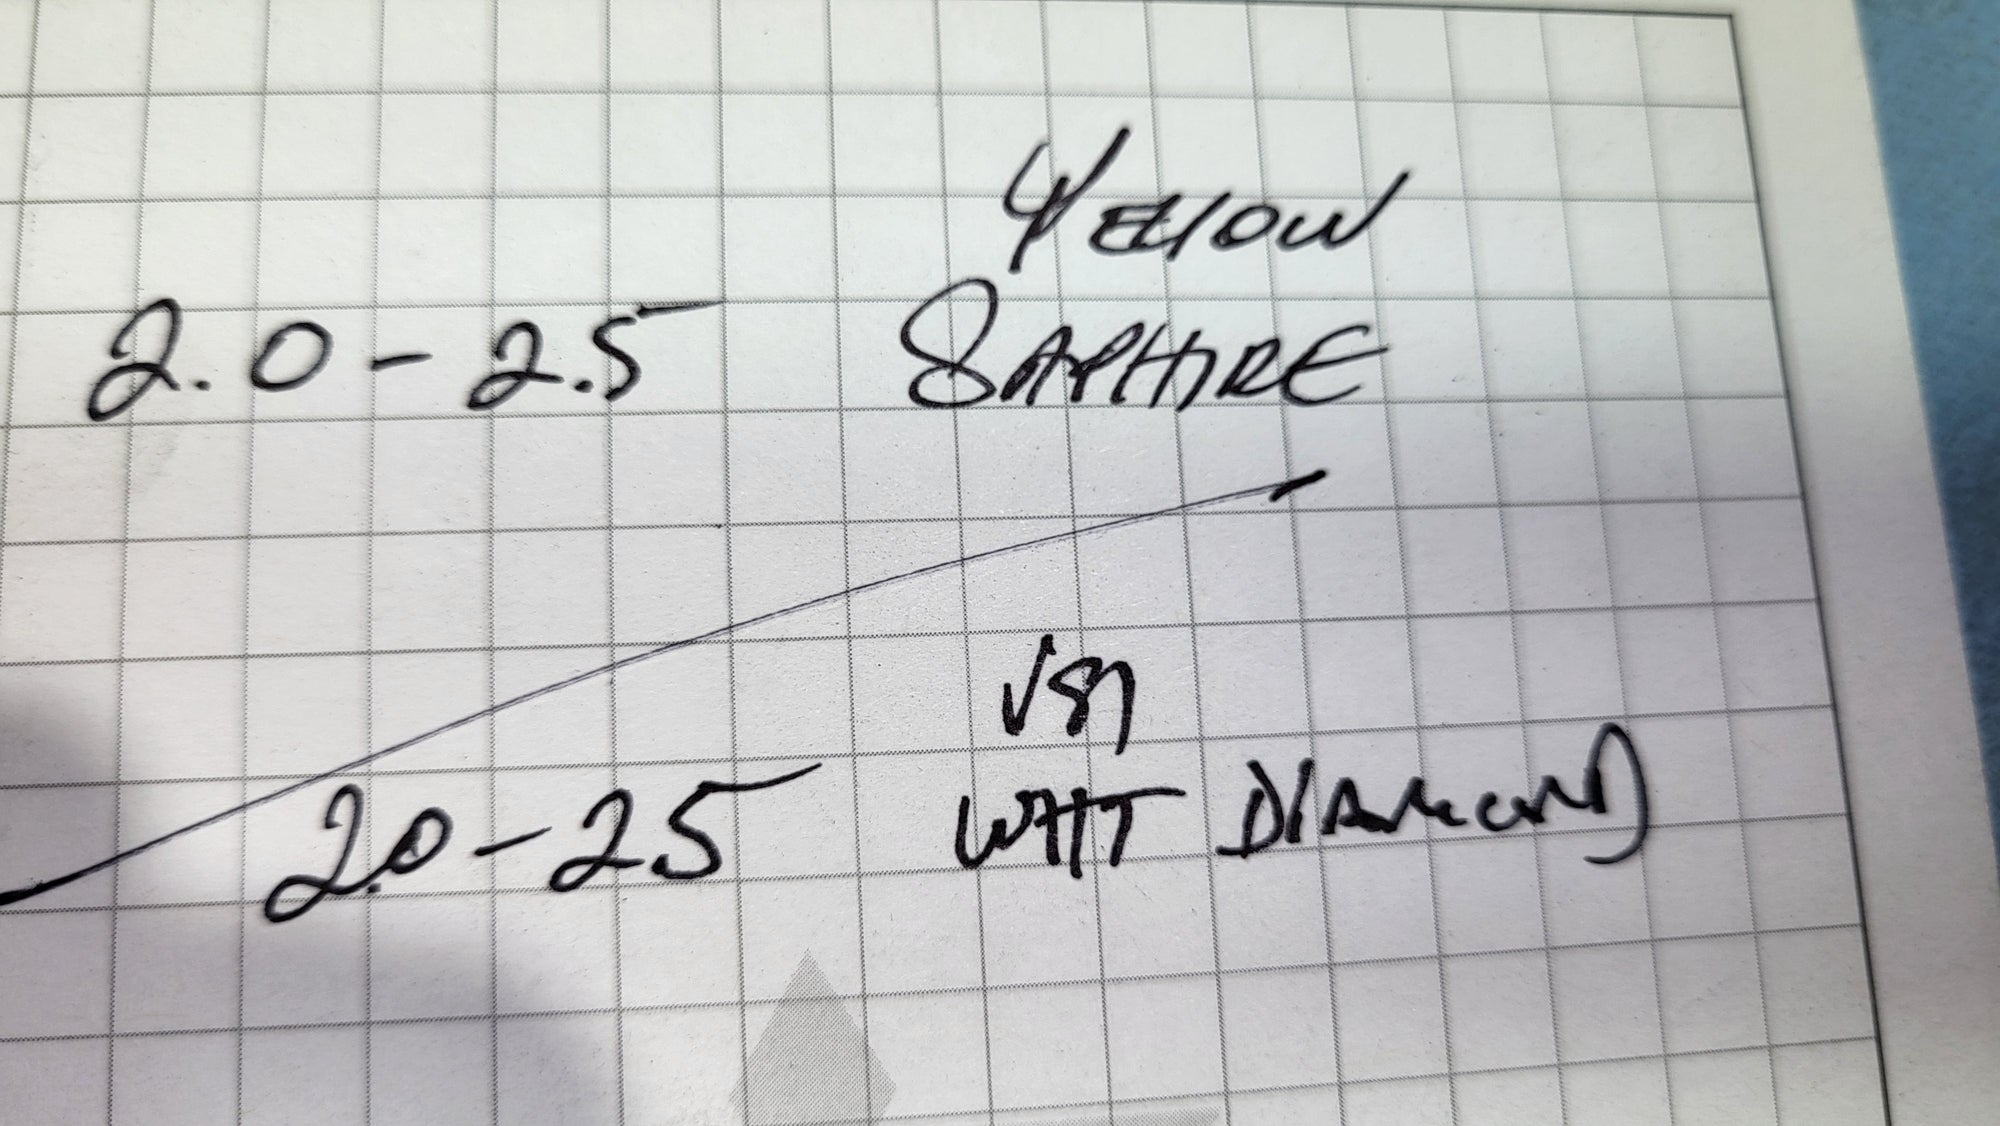 YELLOW
2.0 - 2.5 SAPHIRE
VS1
2.0 - 2.5 WHIT DIAMOND